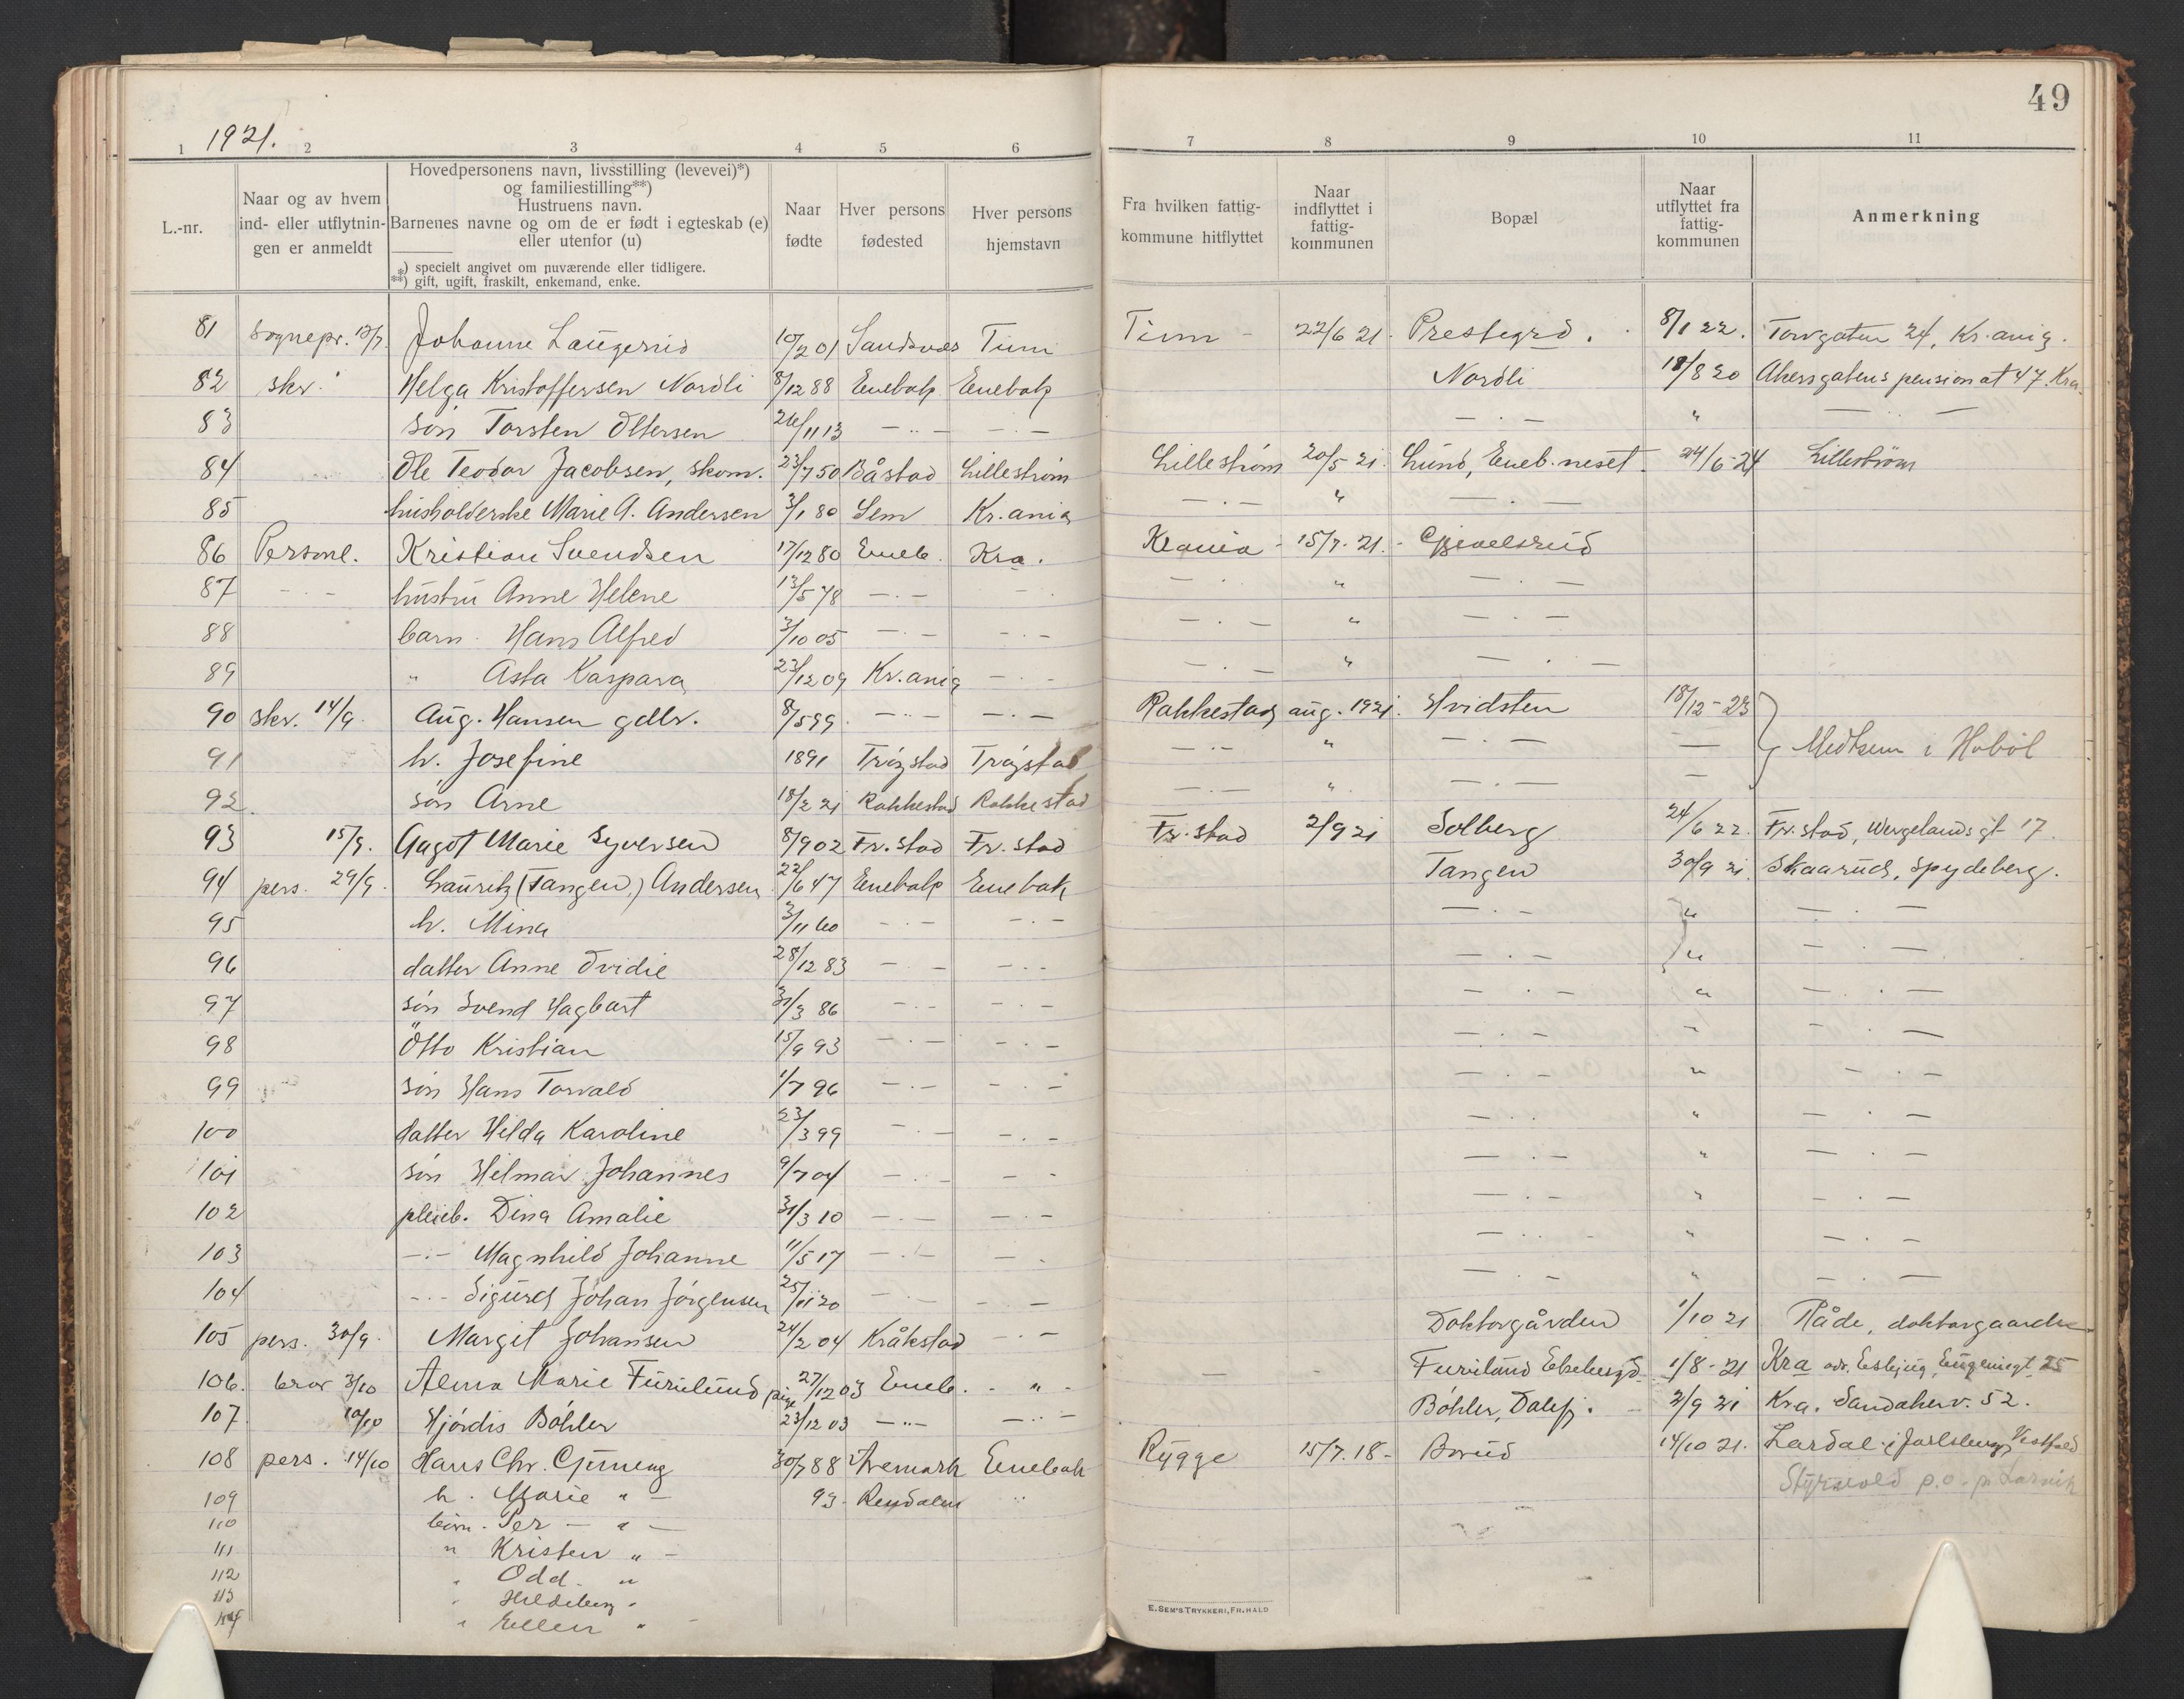 49
1921.
1 2 3 4 5 6 7 8 9 10 11
L.-nr.
Naar og av hvem ind- eller utflytnin-gen er anmeldt
Hovedpersonens navn, livsstilling (levevei)*)
og familiestilling**)
Hustruens navn.
Barnenes navne og om de er født i egteskab (e)
eller utenfor (u)
*) specielt angivet om nuværende eller tidligere.
**) gift, ugift, fraskilt, enkemand, enke.
Naar fødte
Hver persons fødested
Hver persons hjemstavn
Fra hvilken fattig-kommune hitflyttet
Naar indflyttet i fattig-kommunen
Bopæl
Naar utflyttet fra fattig-kommunen
Anmerkning
81 Sognepr. 12/7. Johanne Laugerud 10/2 01 Sandsvær Tinn Tinn - 22/6 21. Prestegrd. 8/1 22. Torvgaten 24, Kr.ania.
82 skr. " Helga Kristoffersen Nordli 8/12 88 Enebakk Enebakk Nordli 18/8 20 Akersgatens pensionat 47 Kra.
83 søn Torsten Ottersen 26/11 13 — " — — " — — " — " — " —
84 Ole Teodor Jacobsen, skom. 23/7 50 Båstad Lillestrøm Lillestrøm 20/5 21. Lund, Eneb.neset. 24/6-24 Lillestrøm
85 husholderske Marie A. Andersen 3/1 80 Sem Kr.ania — . — " — . —
86 Personl. Kristian Svendsen 17/12 80 Eneb. Kra. Krania - 15/7. 21. - Gjevelsrud
87 - . - hustru Anne Helene 13/5 78 — . — - . — . — " — . —
88 barn Hans Alfred 3/10 05 — . — — . — — . — " — . —
89 " Asta Kaspara 23/12 09 Kr.ania — . - — . — " — . —
90 skr. 14/9. Aug. Hansen gdbr. 8/5 99. — . — — . — Rakkestad aug. 1921. Hvidsten 18/12-23
91 h. Josefine 1891 Trøgstad Trøgstad — . — " — . — — Medtsem i Hobøl
92. søn Arne 18/2 21 Rakkestad Rakkestad — . — " — . — —
93 15/9. Aagot Marie Syversen 8/9 02 Fr.stad Fr.stad Fr.stad 2/9 21 Solberg 24/6 22. Fr.stad, Wergelandsgt 17.
94 pers. 29/9. Lauritz (Tangen) Andersen 22/6 47 Enebakk Enebak Tangen 30/9 21. Skaarud, Spydeberg.
95 h. Mina 3/11 60 — . — — . — — . — " — . —
96 datter Anne Ovidie 28/12 83 — — — . - — . — " — . —
97 søn Svend Hagbart 31/3 86 — . — — . — — . — " — . —
98 " Otto Kristian 15/9 93 — . — — . — — . — " — . —
99 søn Hans Torvald 1/7 96 — . — — . — — . — " — . —
100 datter Hilda Karoline 23/3 99 — . — — . — — . — " — . —
101 søn Hilmar Johannes 9/7 04 — . — — - — . — " — . —
102 pleieb. Dina Amalie 31/3 10 — . — — . — — . — " — . —
103 — . — Magnhild Johanne 11/5 17 — . — — . — . — " — . —
104 - . - Sigurd Johan Jørgensen 25/11 20 — . — — . — — . — " — . —
105 pers. 30/9. Margit Johansen 24/2 04 Kråkstad — . — Doktorgården 1/10 21 Råde, doktorgaarden
106. brev 3/10 Alma Marie Furulund pike 27/12 03 Eneb. - " - Furulund Ekebergd. 1/8-21 Kra adr. Esbjug, Eugeniegt 25
107 10/10 Hjørdis Bøhler 23/12 03 — " — — " — Bøhler, Dalefj. 2/9 21 Kra. Sandakerv. 52.
108 pers. 14/10 Hans Chr. Gruneng 30/7 88 Aremark Enebak Rygge 15/7. 18 - Borud 14/10 21. Lardal i Jarlsberg, Vestfold
109 h. Marie " — 93 - Rendalen " Styrvold p.o. pr. Larvik
110 børn. Per — " —
111 " Kristen " —
112 " Odd. "
113 " Hildeborg "
114 " Ellen " -
E. SEM'S TRYKKERI, FR.HALD